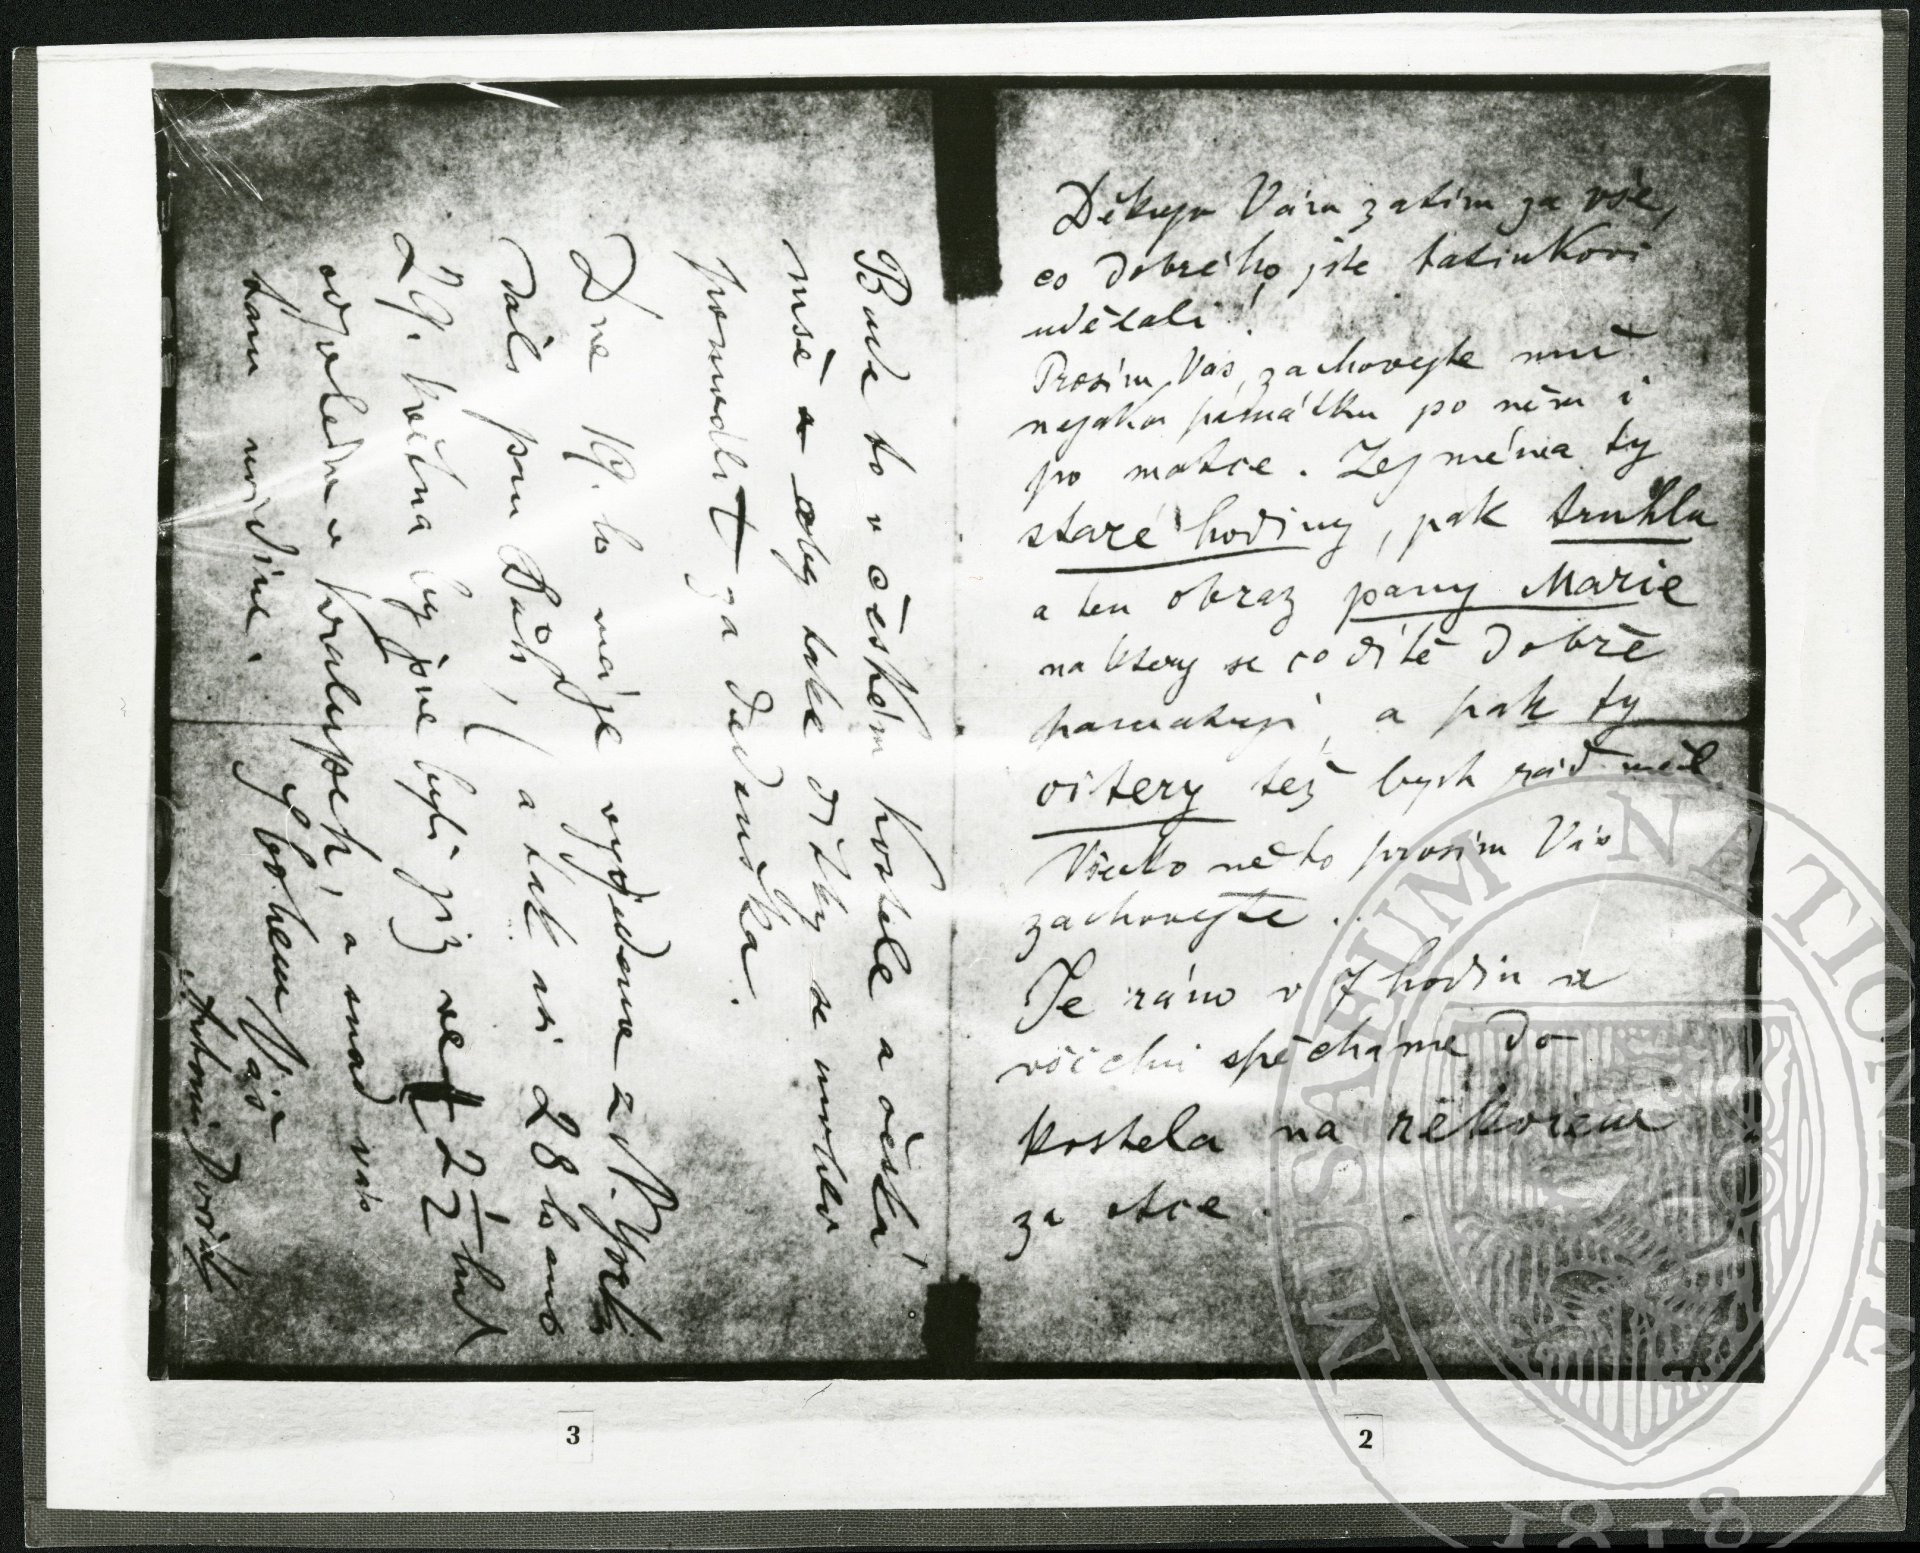 Děkuju Vám zatím za vše,
co dobrého jste tatínkovi
udělali!
Prosím Vás, zachovejte mně
nejakou památku po něm i
po matce. Zejména ty
staré hodiny, pak truhlu
a ten obraz pany Marie
na ktery se co dítě dobře
pamatuji, a pak ty
citery též bych rád měl
Všecko něčo prosím Vás
zachovejte.
Je ráno v 7 hodin a
všichni spěcháme do
kostela na rékviem
za otce.
Bude to v českém kostele a česká
mše a aby také dítky se mohly
pomodlit za dědouška.
Dne 19. ho máje vyjedeme z N. Yorku
dáli pan Bůh, a tak asi 28 ho aneb
29. května by jsme byli již ve
odpoledne v Kralupech, a snad vás
tam uvidíme.
S bohem Váš
Antonín Dvořák
3
2
MUSAEUM NATIONALE
1818